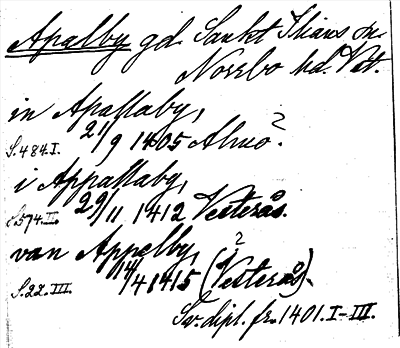 Apalby gd. Sankt Ilians sn.
Norrbo hd. Vstm.
in Apallaby,
S. 484. I. 21/9 1405 Almö?
i Appallaby,
S. 574. II. 29/11 1412 Vesterås.
van Appelby,
S. 22. III. 14/4 1415 (Vesterås)?
Sv. dipl. fr. 1401. I-III.